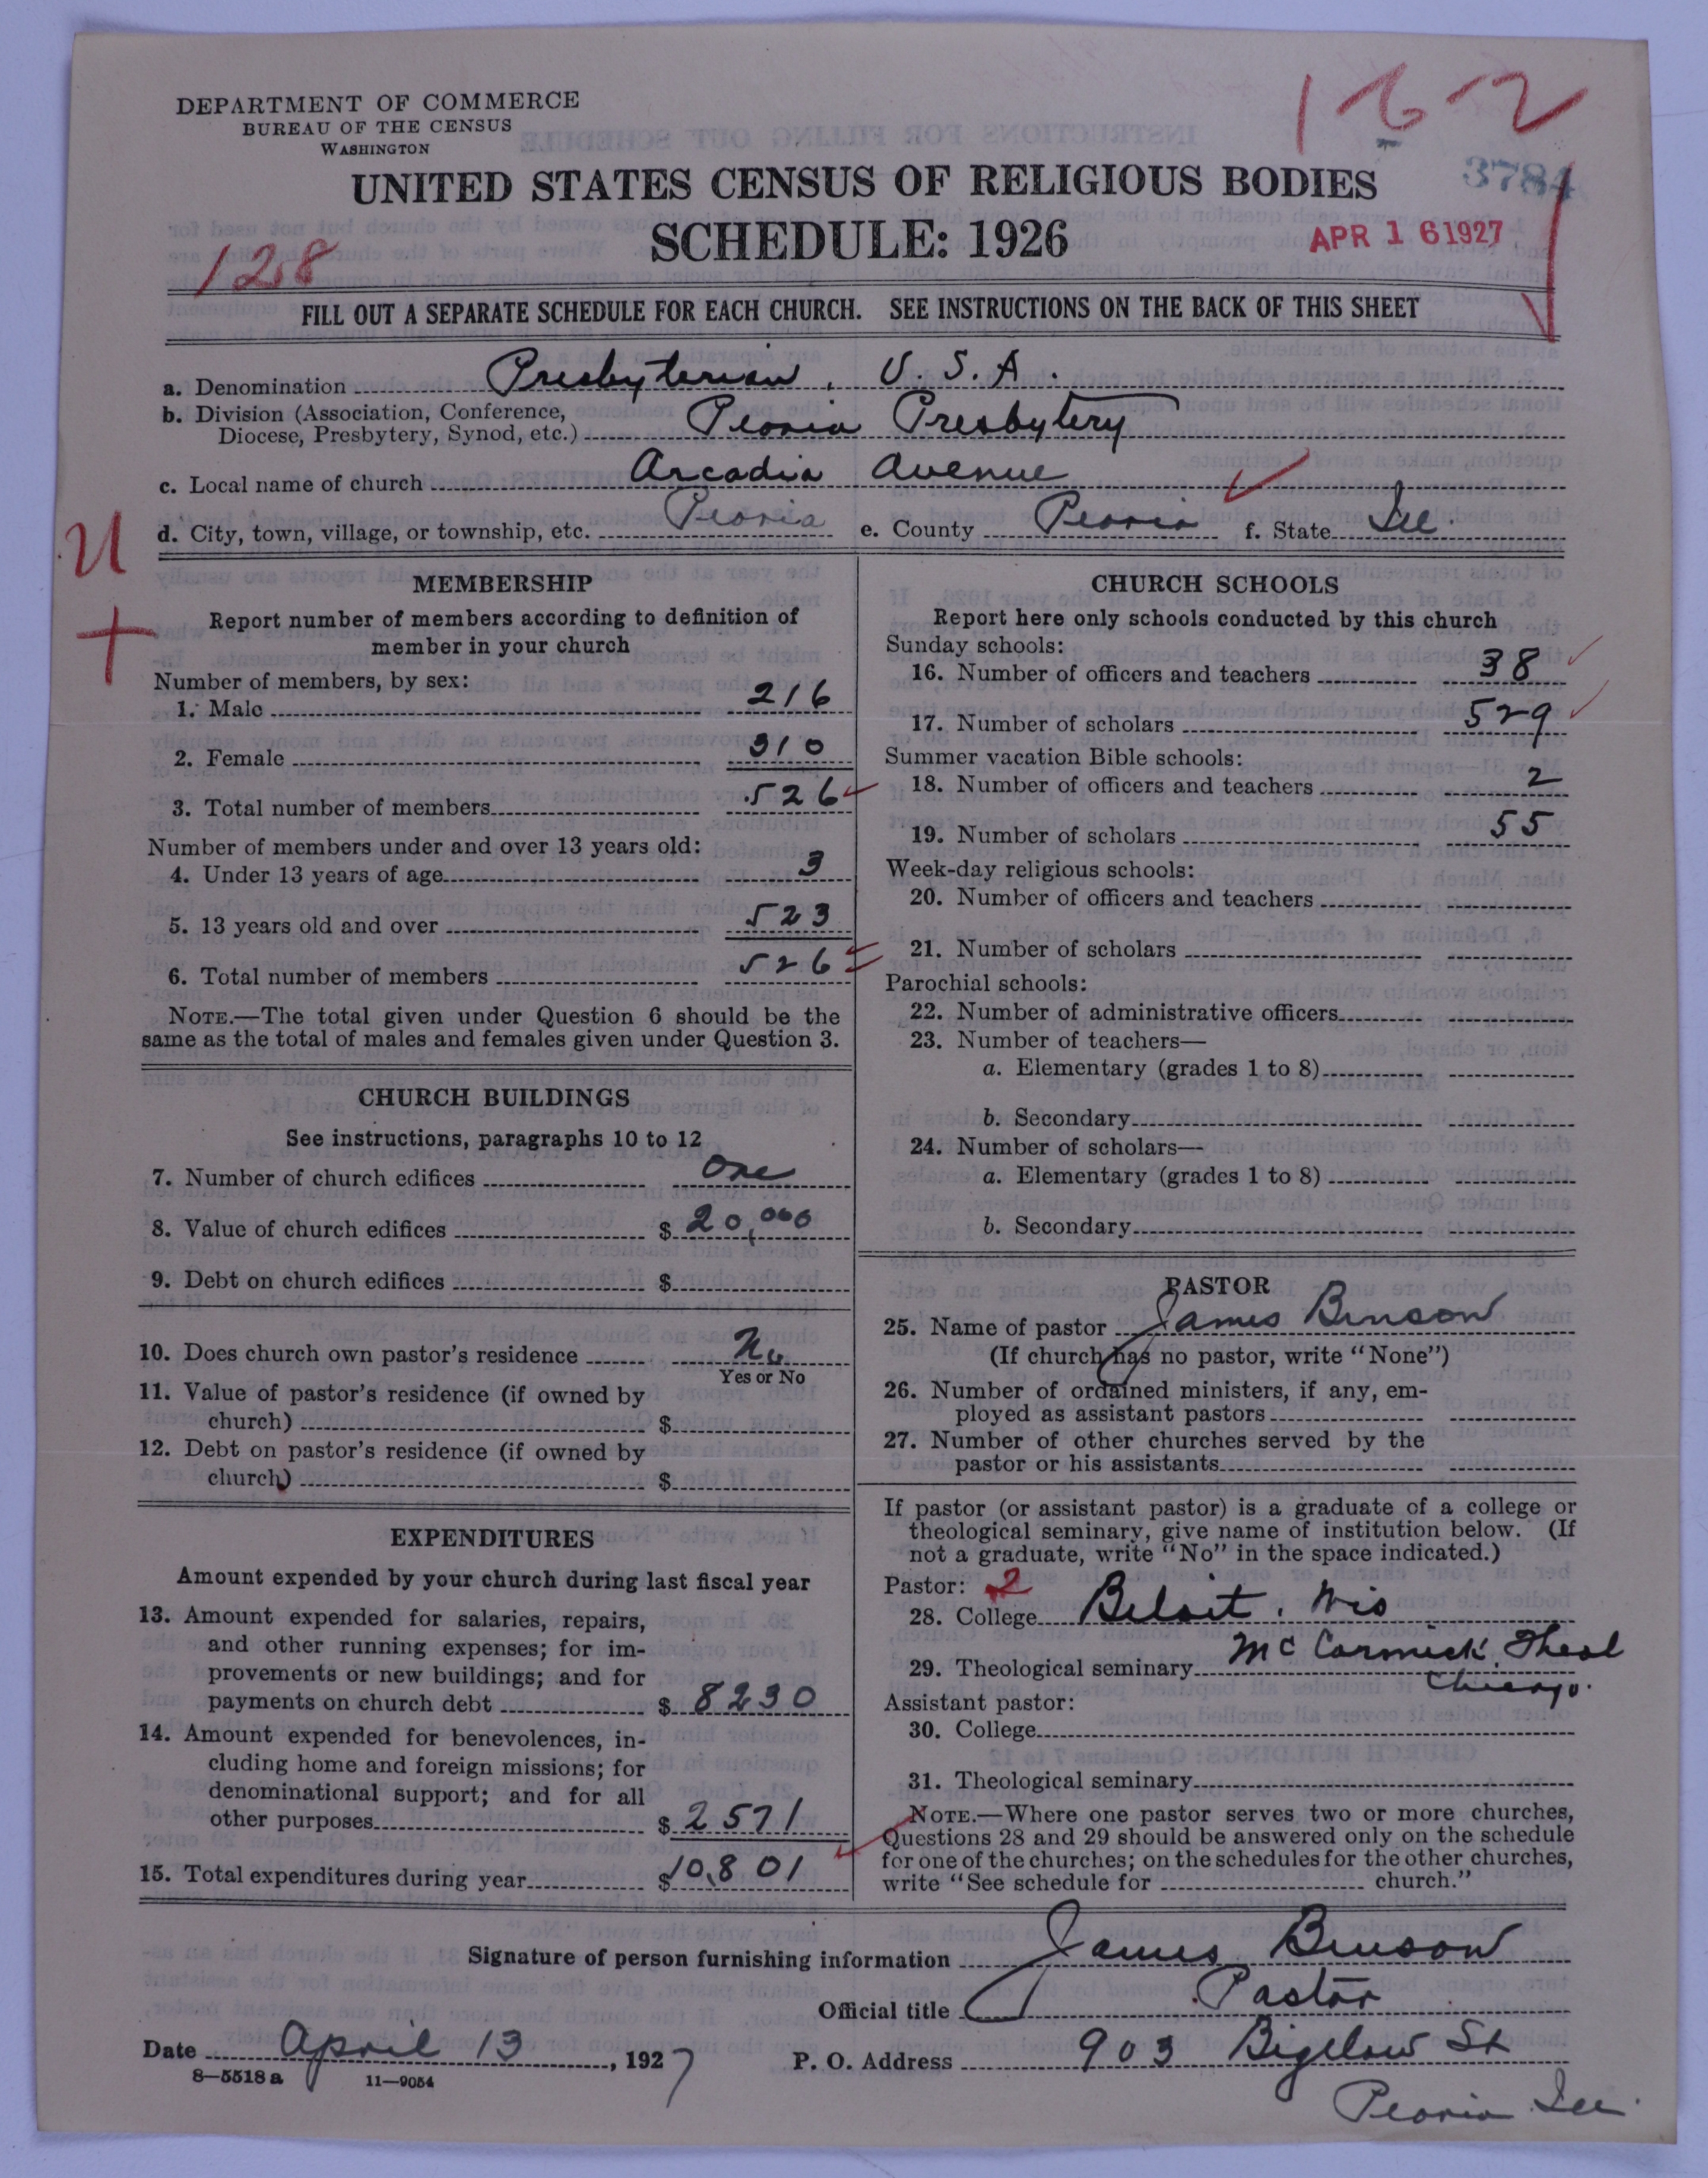 DEPARTMENT OF COMMERCE
BUREAU OF THE CENSUS
WASHINGTON
1-6-2
3784
UNITED STATES CENSUS OF RELIGIOUS BODIES
SCHEDULE: 1926
APR 16 1927
128
FILL OUT A SEPARATE SCHEDULE FOR EACH CHURCH. SEE INSTRUCTIONS ON THE BACK OF THIS SHEET
a. Denomination Presbyterian, U.S.A.
b. Division (Association, Conference,
Diocese, Presbytery, Synod, etc.) Peoria Presbytery
c. Local name of church Arcadia Avenue
d. City, town, village, or township, etc. Peoria e. County Peoria f. State Ill.
U
MEMBERSHIP
Report number of members according to definition of
member in your church
Number of members, by sex:
1. Male 216
2. Female 310
3. Total number of members 526
Number of members under and over 13 years old:
4. Under 13 years of age 3
5. 13 years old and over 523
6. Total number of members 526
NOTE.—The total given under Question 6 should be the
same as the total of males and females given under Question 3.
CHURCH BUILDINGS
See instructions, paragraphs 10 to 12
7. Number of church edifices One
8. Value of church edifices $ 20,000
9. Debt on church edifices $
10. Does church own pastor's residence No
Yes or No
11. Value of pastor's residence (if owned by
church) $
12. Debt on pastor's residence (if owned by
church) $
EXPENDITURES
Amount expended by your church during last fiscal year
13. Amount expended for salaries, repairs,
and other running expenses; for im-
provements or new buildings; and for
payments on church debt $ 8230
14. Amount expended for benevolences, in-
cluding home and foreign missions; for
denominational support; and for all
other purposes $ 2571
15. Total expenditures during year $ 10,801
CHURCH SCHOOLS
Report here only schools conducted by this church
Sunday schools:
16. Number of officers and teachers 38
17. Number of scholars 529
Summer vacation Bible schools:
18. Number of officers and teachers 2
19. Number of scholars 55
Week-day religious schools:
20. Number of officers and teachers
21. Number of scholars
Parochial schools:
22. Number of administrative officers
23. Number of teachers—
a. Elementary (grades 1 to 8)
b. Secondary
24. Number of scholars—
a. Elementary (grades 1 to 8)
b. Secondary
PASTOR
25. Name of pastor James Benson
(If church has no pastor, write "None")
26. Number of ordained ministers, if any, em-
ployed as assistant pastors
27. Number of other churches served by the
pastor or his assistants
If pastor (or assistant pastor) is a graduate of a college or
theological seminary, give name of institution below. (If
not a graduate, write "No" in the space indicated.)
Pastor: 2
28. College Beloit, Wis
29. Theological seminary McCormick Theol
Chicago.
Assistant pastor:
30. College
31. Theological seminary
NOTE.—Where one pastor serves two or more churches,
Questions 28 and 29 should be answered only on the schedule
for one of the churches; on the schedules for the other churches,
write "See schedule for church."
Signature of person furnishing information James Benson
Official title Pastor
Date April 13, 1927 P. O. Address 903 Bigelow St
8—5518a 11—9054
Peoria Ill.